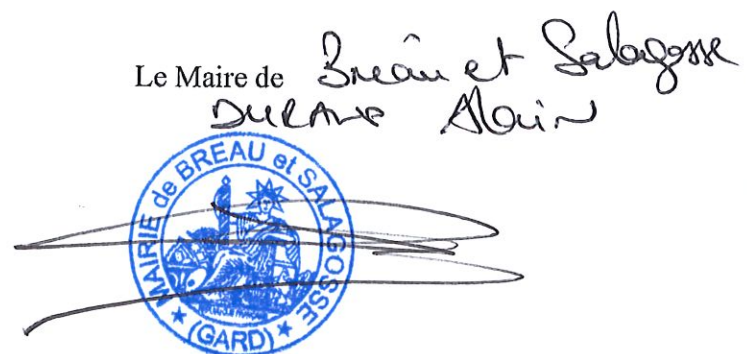 Le Maire de Breau et Salagosse
DURAND Alain
MAIRIE de BREAU et SALAGOSSE
* (GARD) *